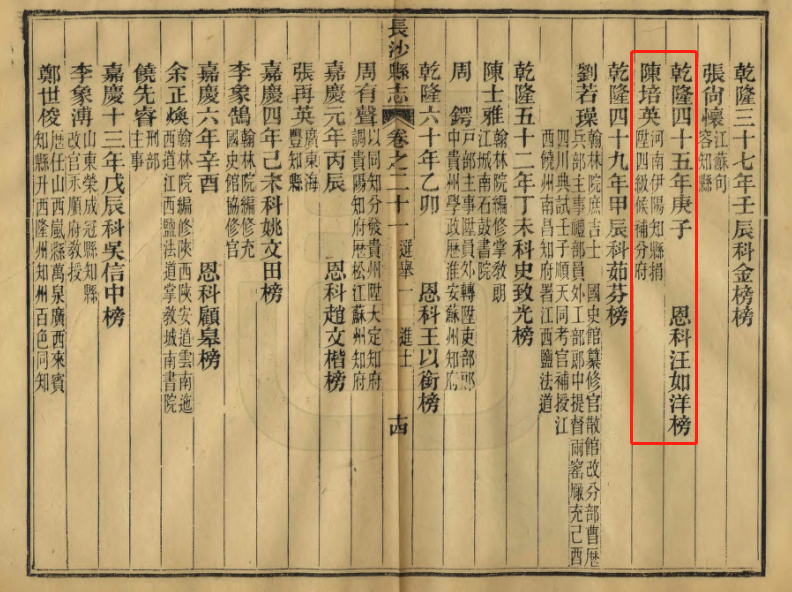 乾隆三十七年壬辰科金榜榜
張尚懷
江蘇句
容知縣
乾隆四十五年庚子 恩科汪如洋榜
陳培英
河南伊陽知縣捐
陞四級候補分府
乾隆四十九年甲辰科茹芬榜
劉若璪
翰林院庶吉士 國史館纂修官散館改分部曹歷
兵部主事禮部員外工部郎中提督兩窑廠充己酉
四川典試壬子順天同考官補授江
西饒州南昌知府署江西鹽法道
乾隆五十二年丁未科史致光榜
陳士雅
翰林院編修掌教朗
江城南石鼓書院
周 鍔
戸部主事陞員外轉陞吏部郎
中貴州學政歷淮安蘇州知府
乾隆六十年乙卯 恩科王以銜榜
長沙縣志 卷之二十一 選舉一 進士 十四
周有聲
以同知分發貴州陞大定知府
調貴陽知府歷松江蘇州知府
嘉慶元年丙辰 恩科趙文楷榜
張再英
廣東海
豐知縣
嘉慶四年己未科姚文田榜
李象鵠
翰林院編修充
國史館協修官
嘉慶六年辛酉 恩科顧皋榜
余正煥
翰林院編修陝西陝安道雲南迤
西道江西鹽法道掌教城南書院
饒先睿
刑部
主事
嘉慶十三年戊辰科吳信中榜
李象溥
山東榮成冠縣知縣
改官永順府教授
鄭世俊
歷任山西嵐縣萬泉廣西來賓
知縣升西隆州知州百色同知